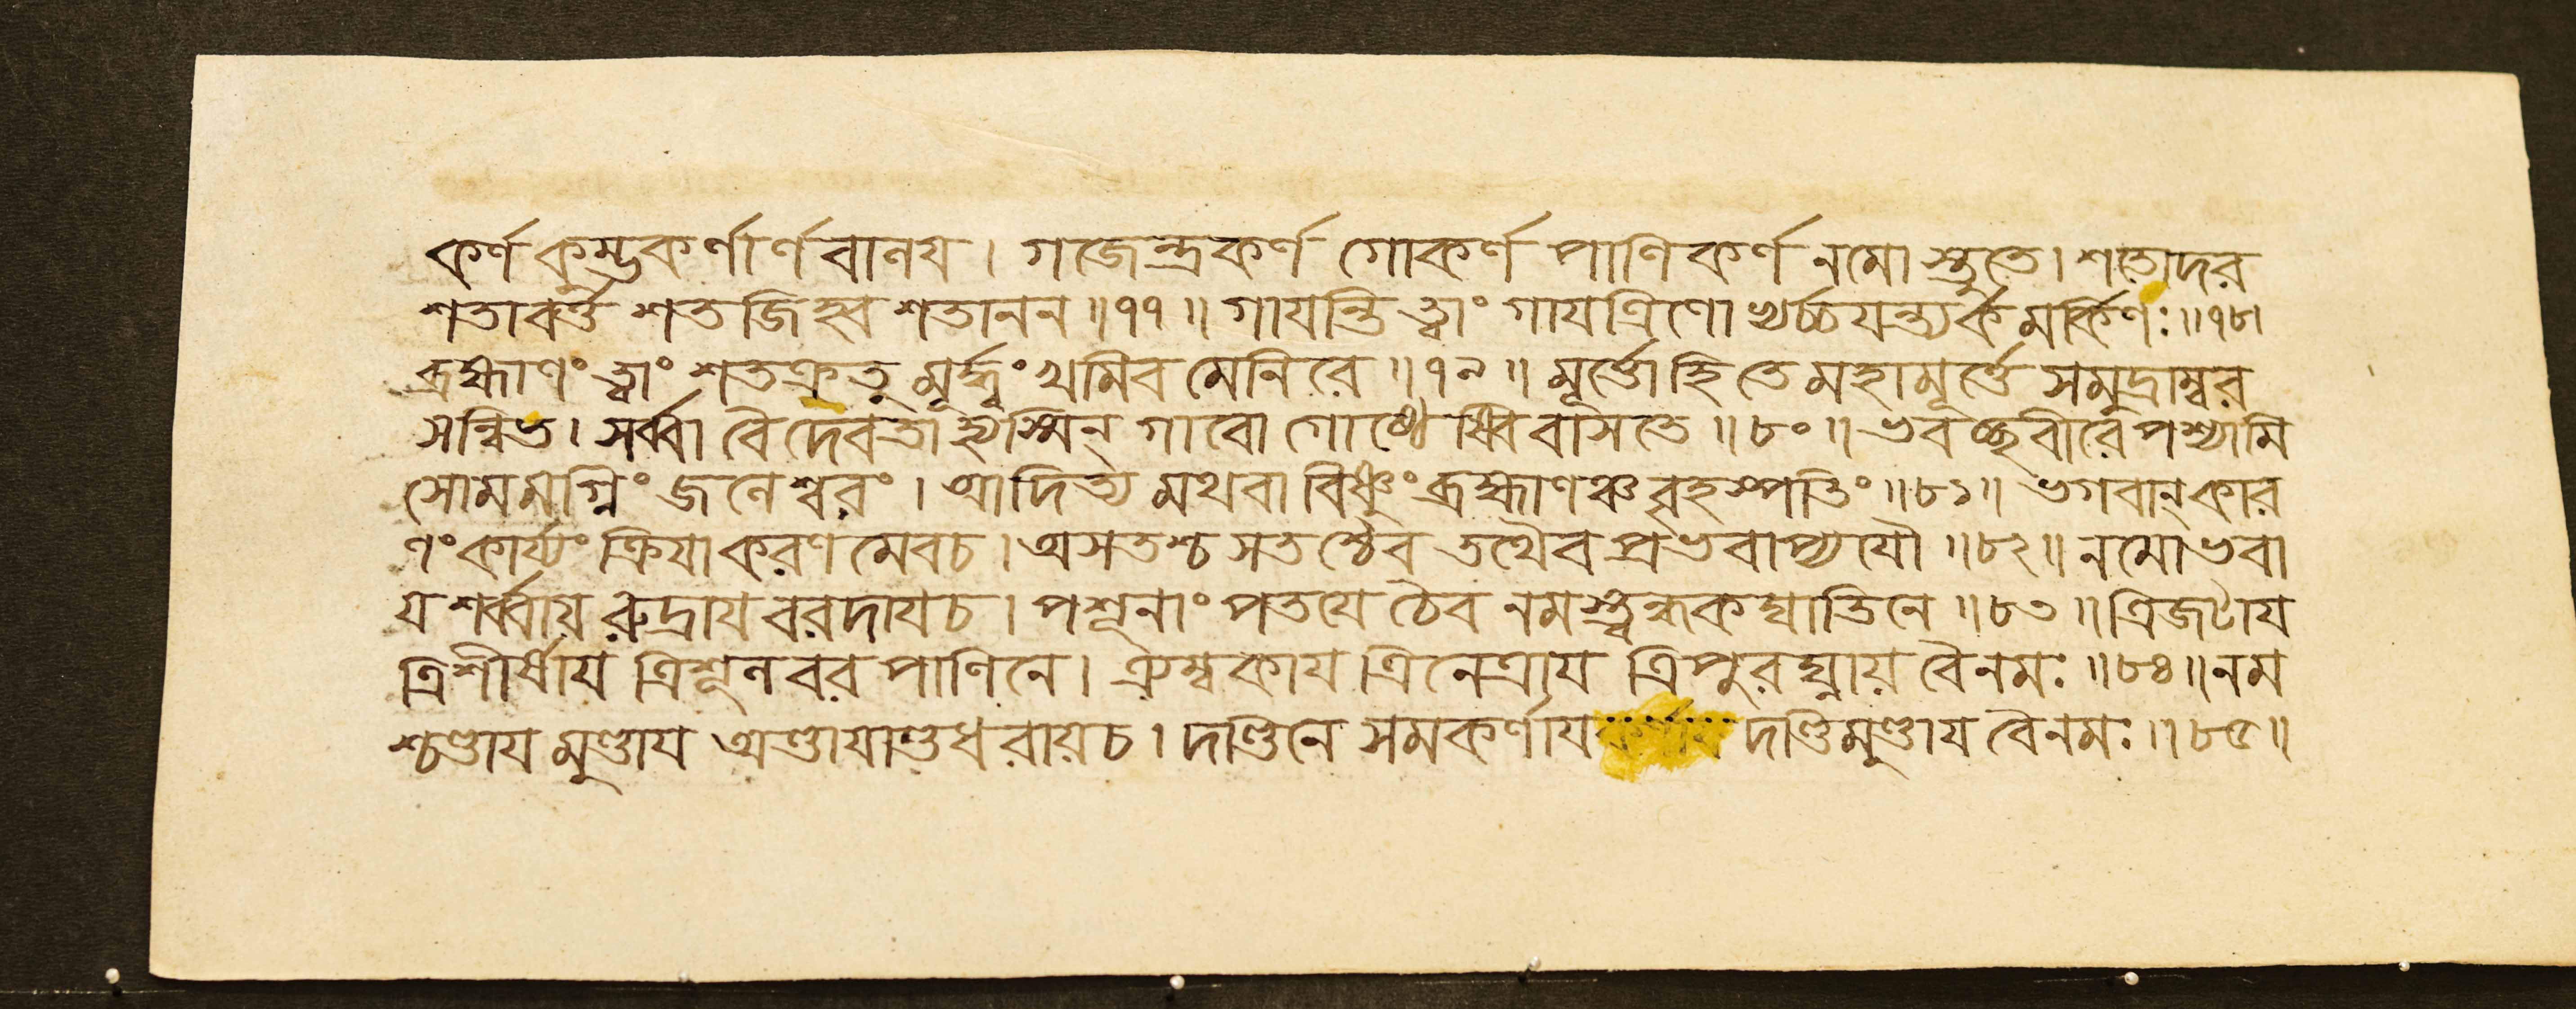 কর্ণ কুম্ভকর্ণার্ণবালয়। গজেন্দ্রকর্ণ গোকর্ণ পাণিকর্ণ নমোস্তুতে। শতোদর
শতাবর্ত্ত শতজিহ্ব শতানন॥৭৭॥ গাযন্তি ত্বাং গাযত্রিণো হ্যর্চ্চযন্ত্যর্কমর্কিণঃ॥৭৮।
ব্রহ্মাণং ত্বাং শতক্রতু মূর্দ্ধ্বং খমিব মেনিরে॥৭৯॥ মূর্ত্তৌ হি তে মহামূর্ত্তে সমুদ্রাম্বর
সন্নিভ। সর্ব্বা বৈ দেবতা হ্যস্মিন্ গাবো গোষ্ঠৈষ্বিবাসতে॥৮০॥ ভবচ্ছরীরে পশ্যামি
সোমমগ্নিং জলেশ্বরং। আদিত্য মথবা বিষ্ণুং ব্রহ্মাণঞ্চ বৃহস্পতিং॥৮১॥ ভগবান্ কার
ণং কার্য্যং ক্রিযাকরণমেবচ। অসতশ্চ সতশ্চৈব তথৈব প্রভবাপ্যযৌ॥৮২॥ নমো ভবা
য শর্ব্বায় রুদ্রায বরদাযচ। পশূনাং পতযে চৈব নমস্ত্বন্ধকঘাতিনে॥৮৩॥ ত্রিজটায
ত্রিশীর্ষায ত্রিশূলবর পাণিনে। ত্র্যম্বকায ত্রিনেত্রায ত্রিপুরঘ্নায় বৈনমঃ॥৮৪॥ নম
শ্চণ্ডায মুণ্ডায অণ্ডাযাণ্ডধরায়চ। দণ্ডিনে সমকর্ণায দণ্ডিমুণ্ডায বৈনমঃ॥৮৫॥